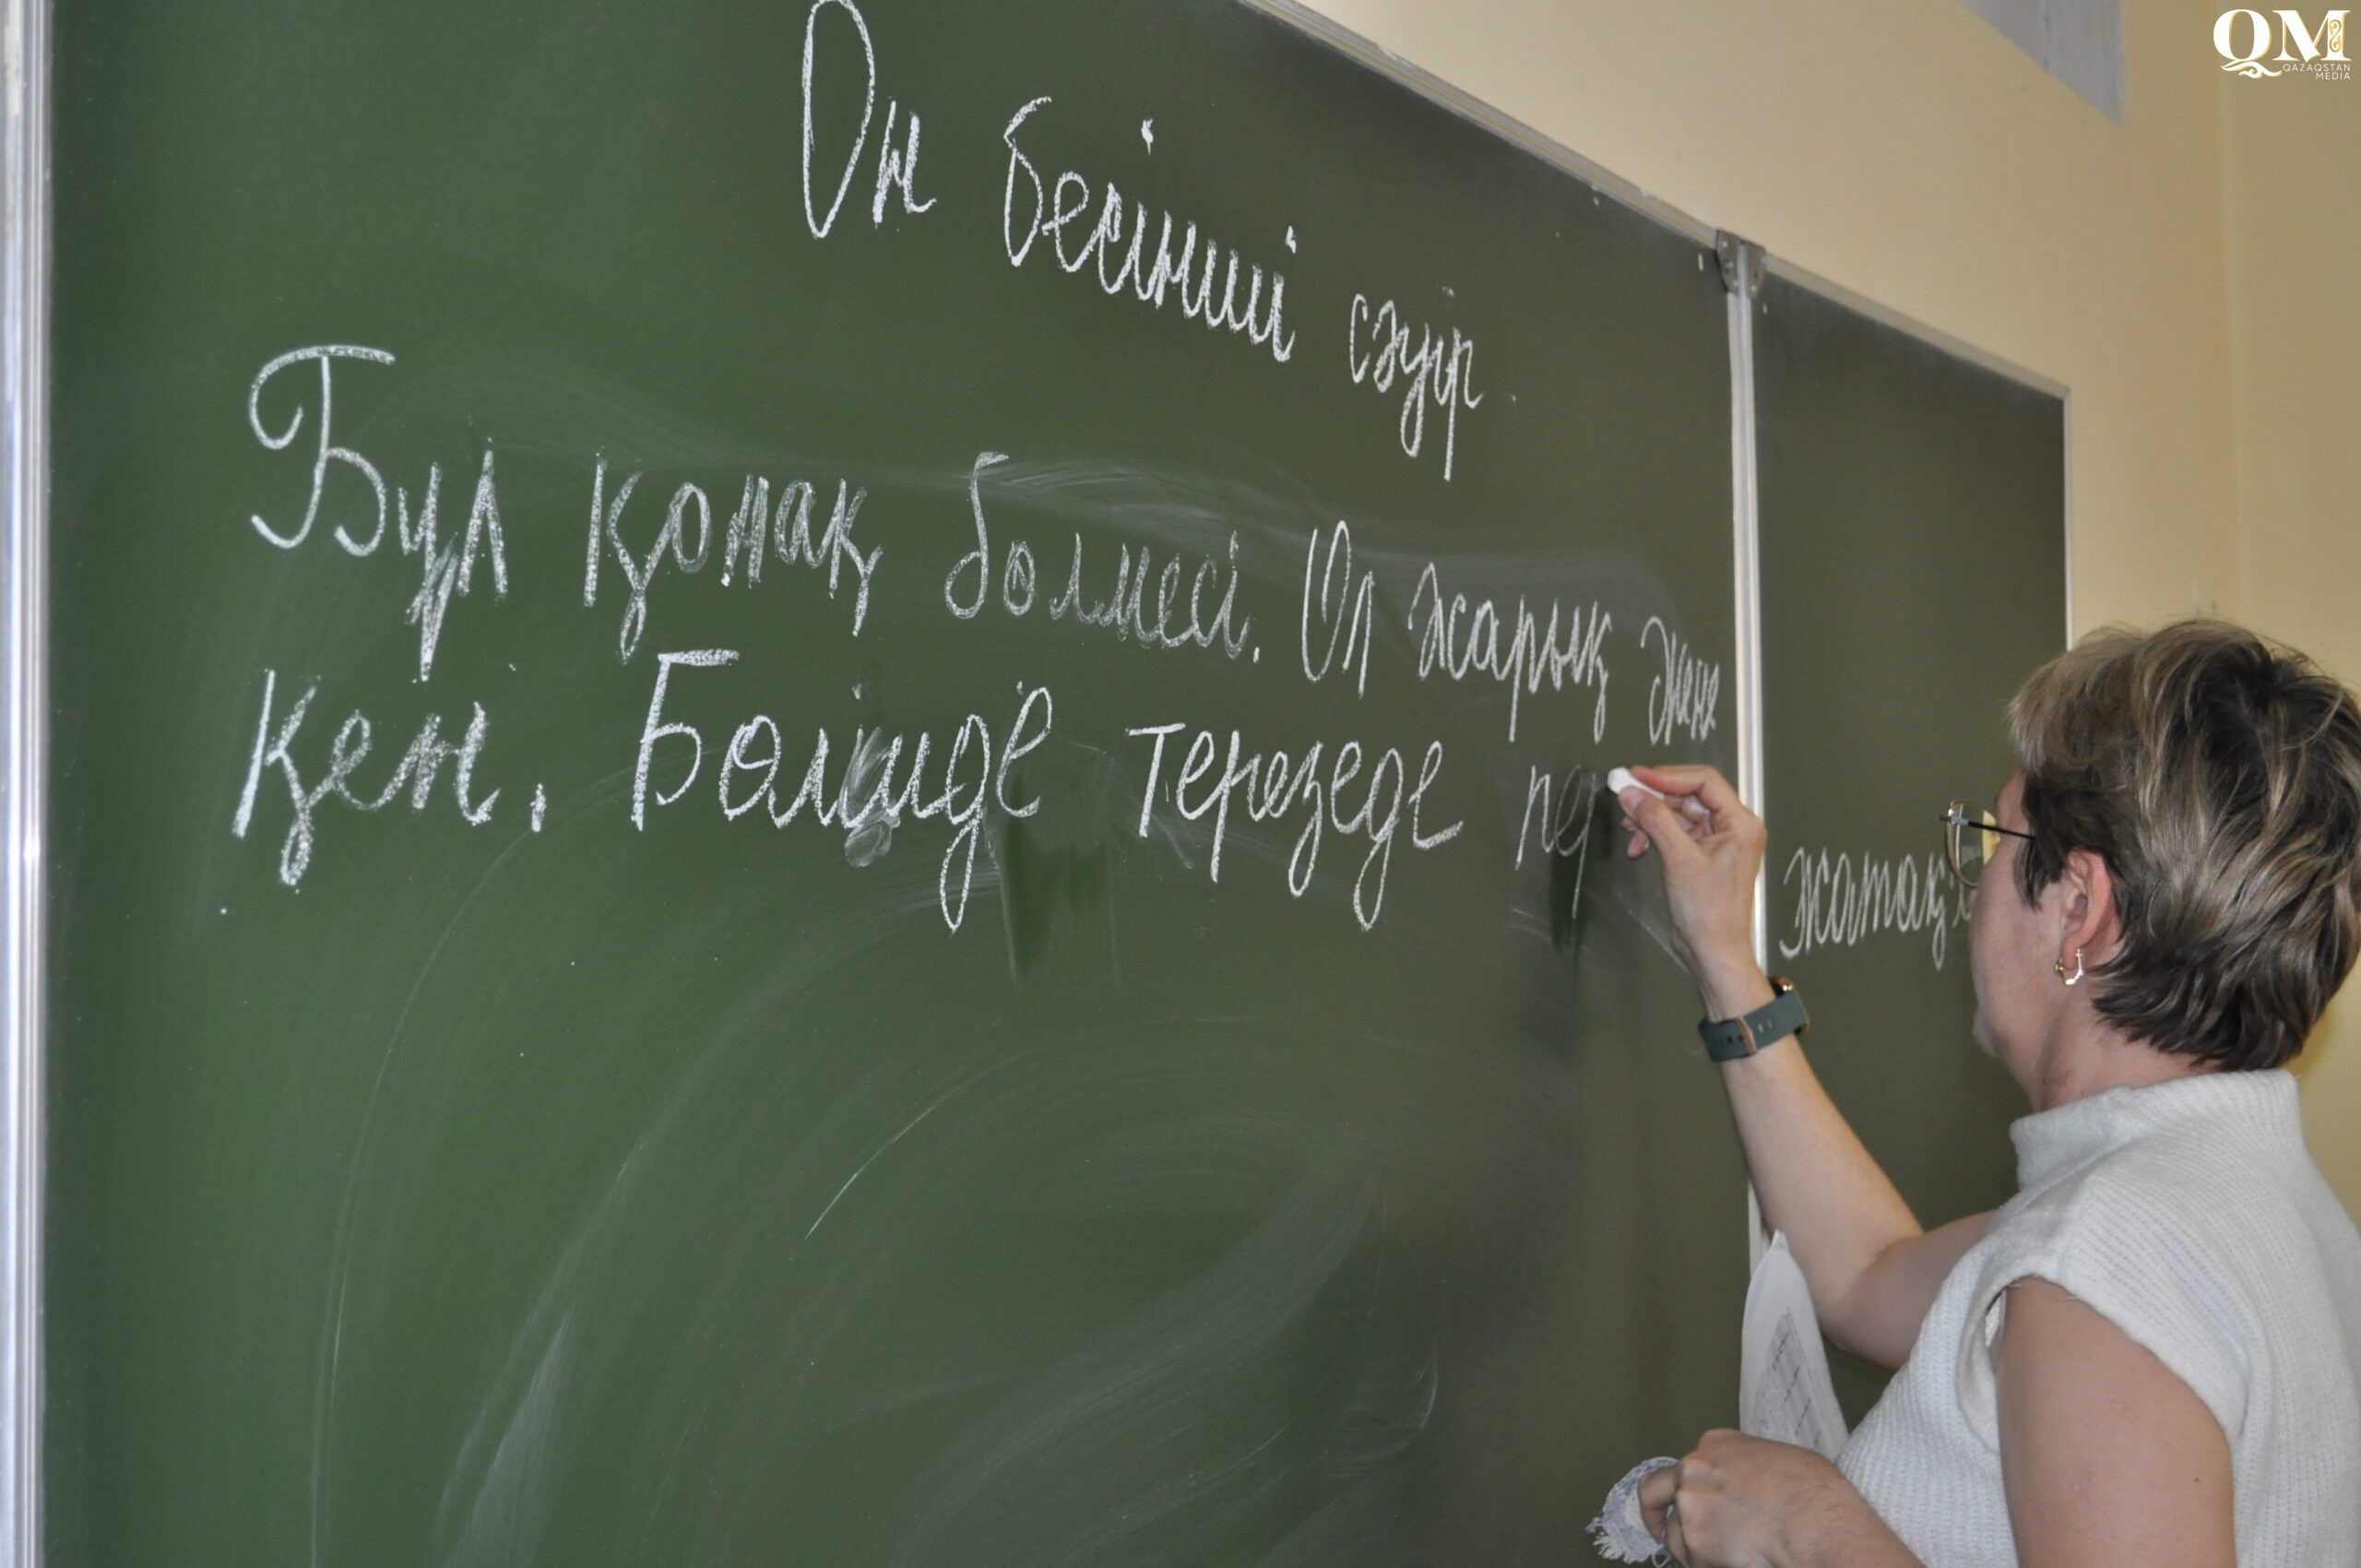 Он бесінші сәуір.
Бұл қонақ бөлмесі. Ол жарық және
кең. Бөлмеде терезеде пер
жатақ
QM
QAZAQSTAN
MEDIA